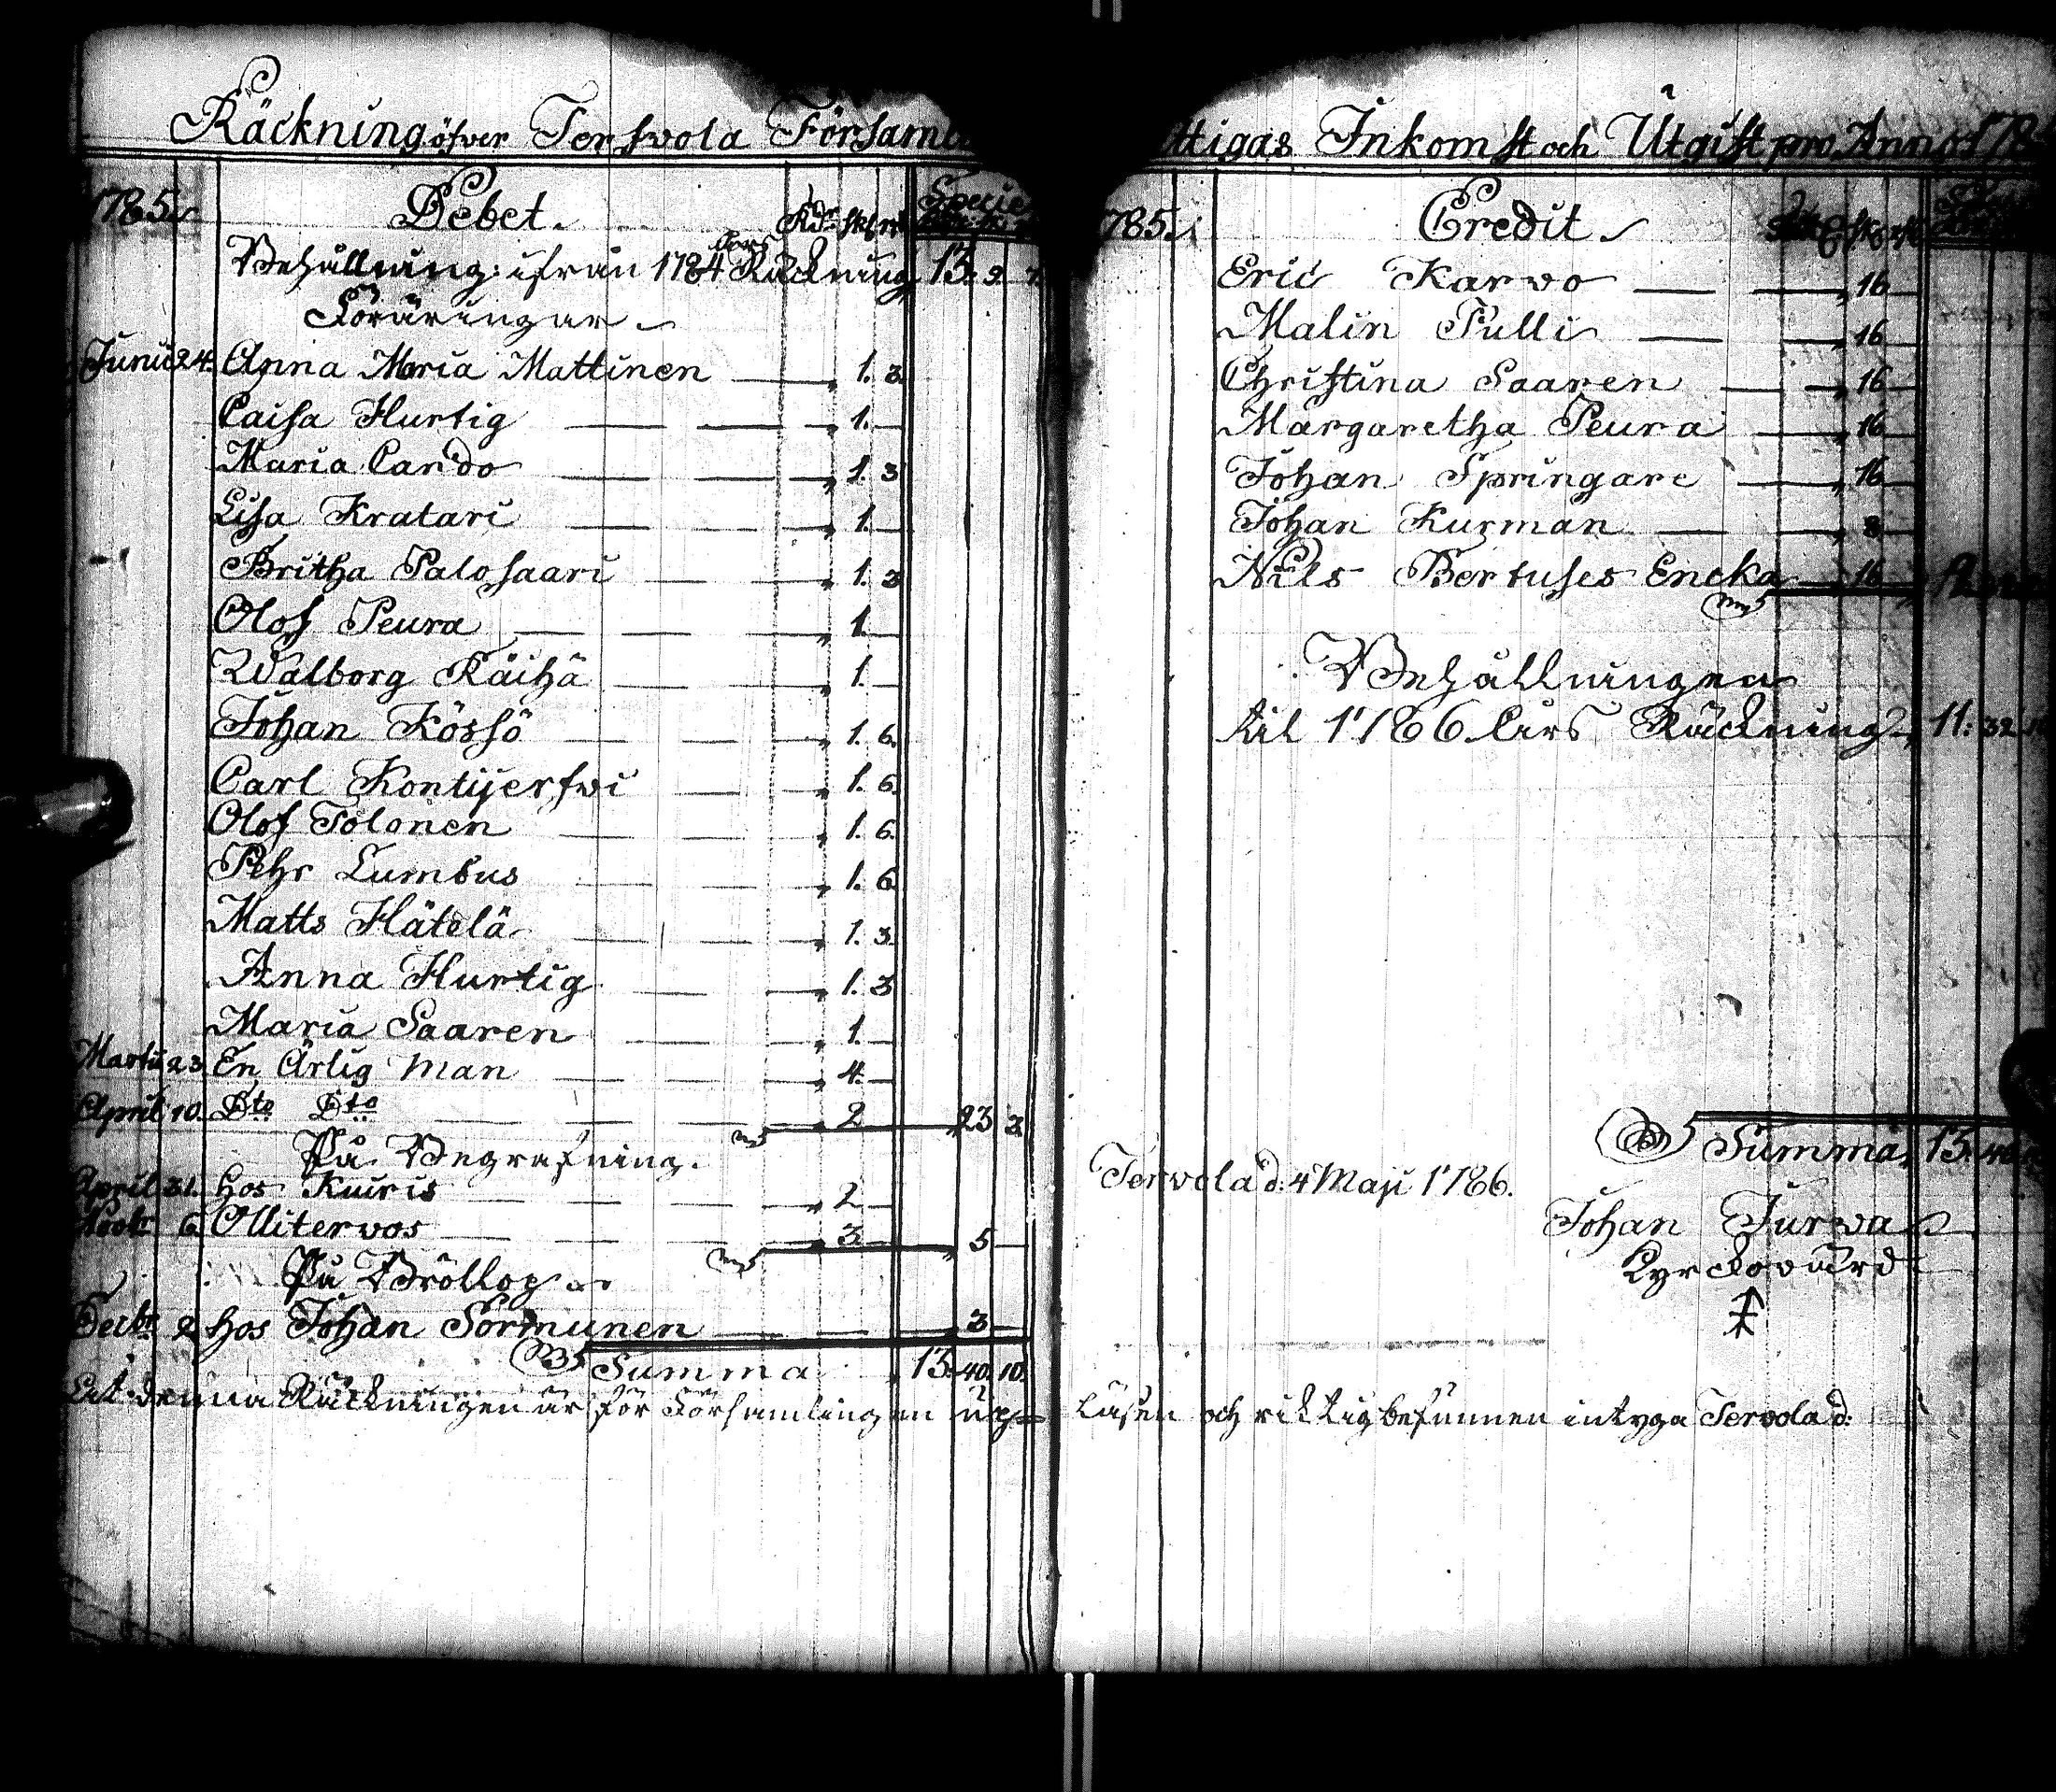 Räckning öfver Terfvola Församl
1785. Debet. Rdr skl. rst Specie
Behållning ifrån 1784 års Räckning 13. 9. 7.
Föräringar
Junii 24. Anna Maria Mattinen — „ 1. 3.
Caisa Hurtig — „ 1. —
Maria Cardo — „ 1. 3
Lisa Kratari — „ 1. —
Britha Palosaari — „ 1. 3
Olof Peura — „ 1. —
Walborg Räihä — „ 1. —
Johan Kössö — „ 1. 6.
Carl Kontijerfwi — „ 1. 6.
Olof Tolonen — „ 1. 6.
Pehr Lumbus — „ 1. 6.
Matts Hätelä — „ 1. 3.
Anna Hurtig — „ 1. 3
Maria Saaren — „ 1. —
Martii 23 En Ärlig Man — „ 4. —
April 10. Dto Dto — „ 2 — „ 23 3
På Begrafning.
April 31. hos Kuiris — „ 2 —
6 Ollitervos — „ 3 — „ 5 —
På Bröllop
Decbr 2 hos Johan Sormunen — 3 —
Summa 13. 40. 10.
At denna Räckningen är för Församlingen up-
ttigas Inkomst och Utgift pro Anno 178
1785. Credit
Eric Karvo — „ 16 —
Malin Pulli — „ 16 —
Christina Saaren — „ 16 —
Margaretha Peura — „ 16 —
Johan Springare — „ 16 —
Johan Kurman — „ 8 —
Nils Bertuses Encka — „ 16 —
Behållningen
til 1786 års Räckning 11. 32.
Summa 13. 40.
Tervola d: 4 Maji 1786.
Johan Turva
Kyrckovärd
läsen och riktig befunnen intyga Tervola d: